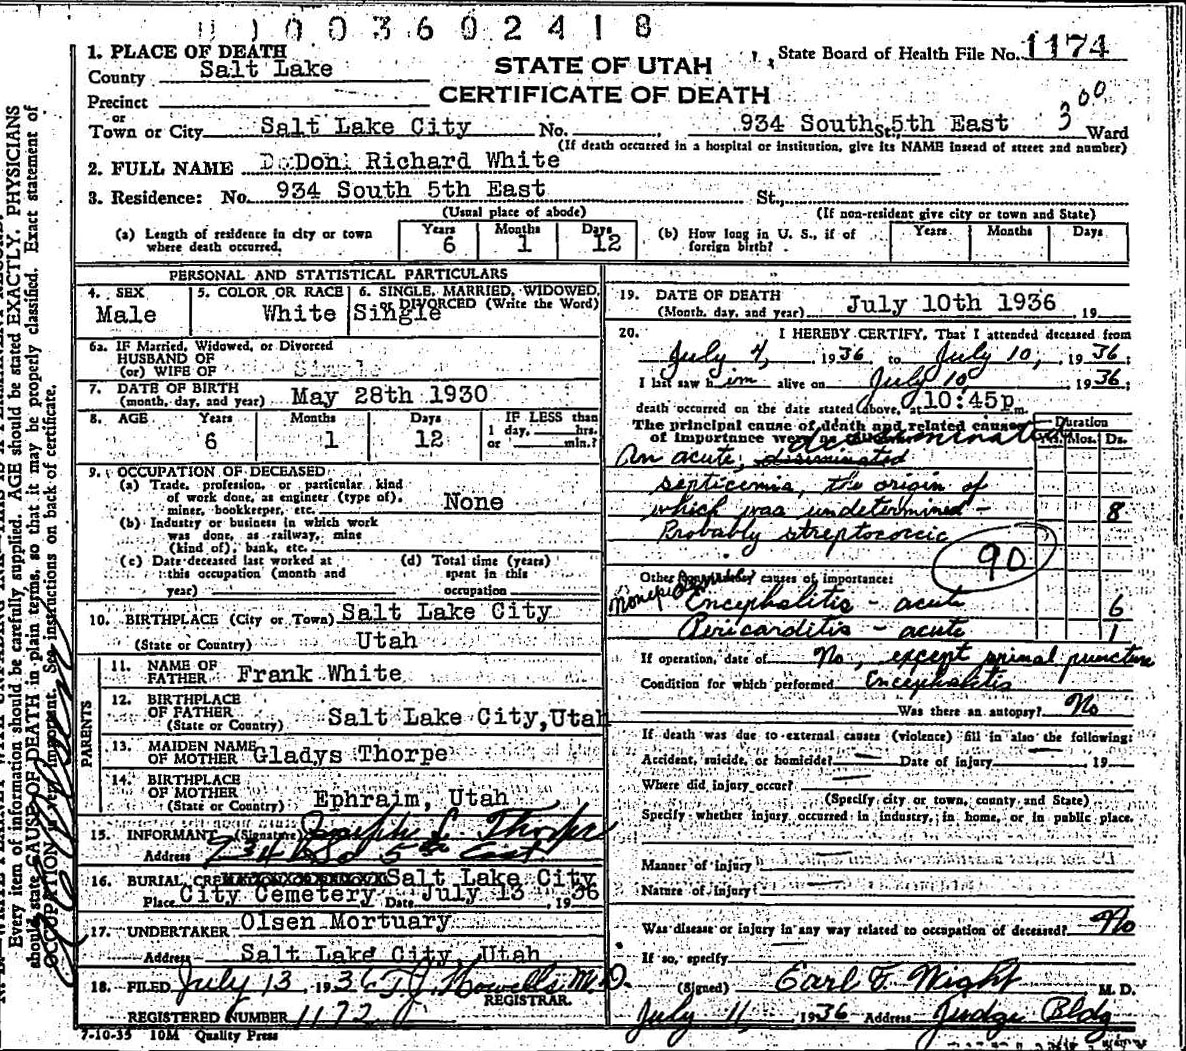 0 1 0 0 3 6 0 2 4 1 8
1. PLACE OF DEATH
County Salt Lake
STATE OF UTAH
State Board of Health File No. 1174
CERTIFICATE OF DEATH
Precinct
or
Town or City Salt Lake City No. 934 South St. 5th East 3 00 Ward
(If death occurred in a hospital or institution, give its NAME instead of street and number)
2. FULL NAME Don Richard White
3. Residence: No. 934 South 5th East St.,
(Usual place of abode) (If non-resident give city or town and State)
(a) Length of residence in city or town where death occurred. Years 6 Months 1 Days 12
(b) How long in U. S., if of foreign birth? Years Months Days
PERSONAL AND STATISTICAL PARTICULARS
4. SEX Male
5. COLOR OR RACE White
6. SINGLE, MARRIED, WIDOWED, or DIVORCED (Write the Word) Single
6a. IF Married, Widowed, or Divorced
HUSBAND OF
(or) WIFE OF Single
7. DATE OF BIRTH
(month, day, and year) May 28th 1930
8. AGE Years 6 Months 1 Days 12
IF LESS than
1 day, hrs.
or min.?
9. OCCUPATION OF DECEASED
(a) Trade, profession, or particular kind
of work done, as engineer (type of),
miner, bookkeeper, etc. None
(b) Industry or business in which work
was done, as railway, mine
(kind of), bank, etc.
(c) Date deceased last worked at
this occupation (month and
year)
(d) Total time (years)
spent in this
occupation
10. BIRTHPLACE (City or Town) Salt Lake City
(State or Country) Utah
PARENTS
11. NAME OF
FATHER Frank White
12. BIRTHPLACE
OF FATHER
(State or Country) Salt Lake City, Utah
13. MAIDEN NAME
OF MOTHER Gladys Thorpe
14. BIRTHPLACE
OF MOTHER
(State or Country) Ephraim, Utah
15. INFORMANT (Signature) Joseph L. Thorpe
Address 934 So 5th East
16. BURIAL, Salt Lake City
Place City Cemetery Date July 13, 1936
Olsen Mortuary
17. UNDERTAKER
Address Salt Lake City, Utah
18. FILED July 13, 1936 T.J. Howells M.D.
REGISTRAR.
REGISTERED NUMBER 1172
7-10-35 10M Quality Press
19. DATE OF DEATH
(Month, day, and year) July 10th 1936, 19
20. I HEREBY CERTIFY, That I attended deceased from
July 4, 1936, to July 10, 1936;
I last saw him alive on July 10, 1936;
death occurred on the date stated above, at 10:45p m.
The principal cause of death and related causes
of importance were as
Duration
Yrs. Mos. Ds.
disseminated
An acute, disiminated
septicemia, the origin of
which was undetermined - 8
Probably streptococcic
90
Other causes of importance:
Encephalitis - acute 6
Pericarditis - acute 1
If operation, date of No, except spinal puncture
Condition for which performed Encephalitis
Was there an autopsy? No
If death was due to external causes (violence) fill in also the following:
Accident, suicide, or homicide? — Date of injury — 19
Where did injury occur? —
(Specify city or town, county and State)
Specify whether injury occurred in industry, in home, or in public place.
Manner of injury —
Nature of injury —
Was disease or injury in any way related to occupation of deceased? No
If so, specify
(Signed) Earl F. Wight M. D.
July 11, 1936 Address Judge Bldg
Every item of information should be carefully supplied. AGE should be stated EXACTLY. PHYSICIANS
should state CAUSE OF DEATH in plain terms, so that it may be properly classified. Exact statement of
OCCUPATION is very important. See instructions on back of certificate.